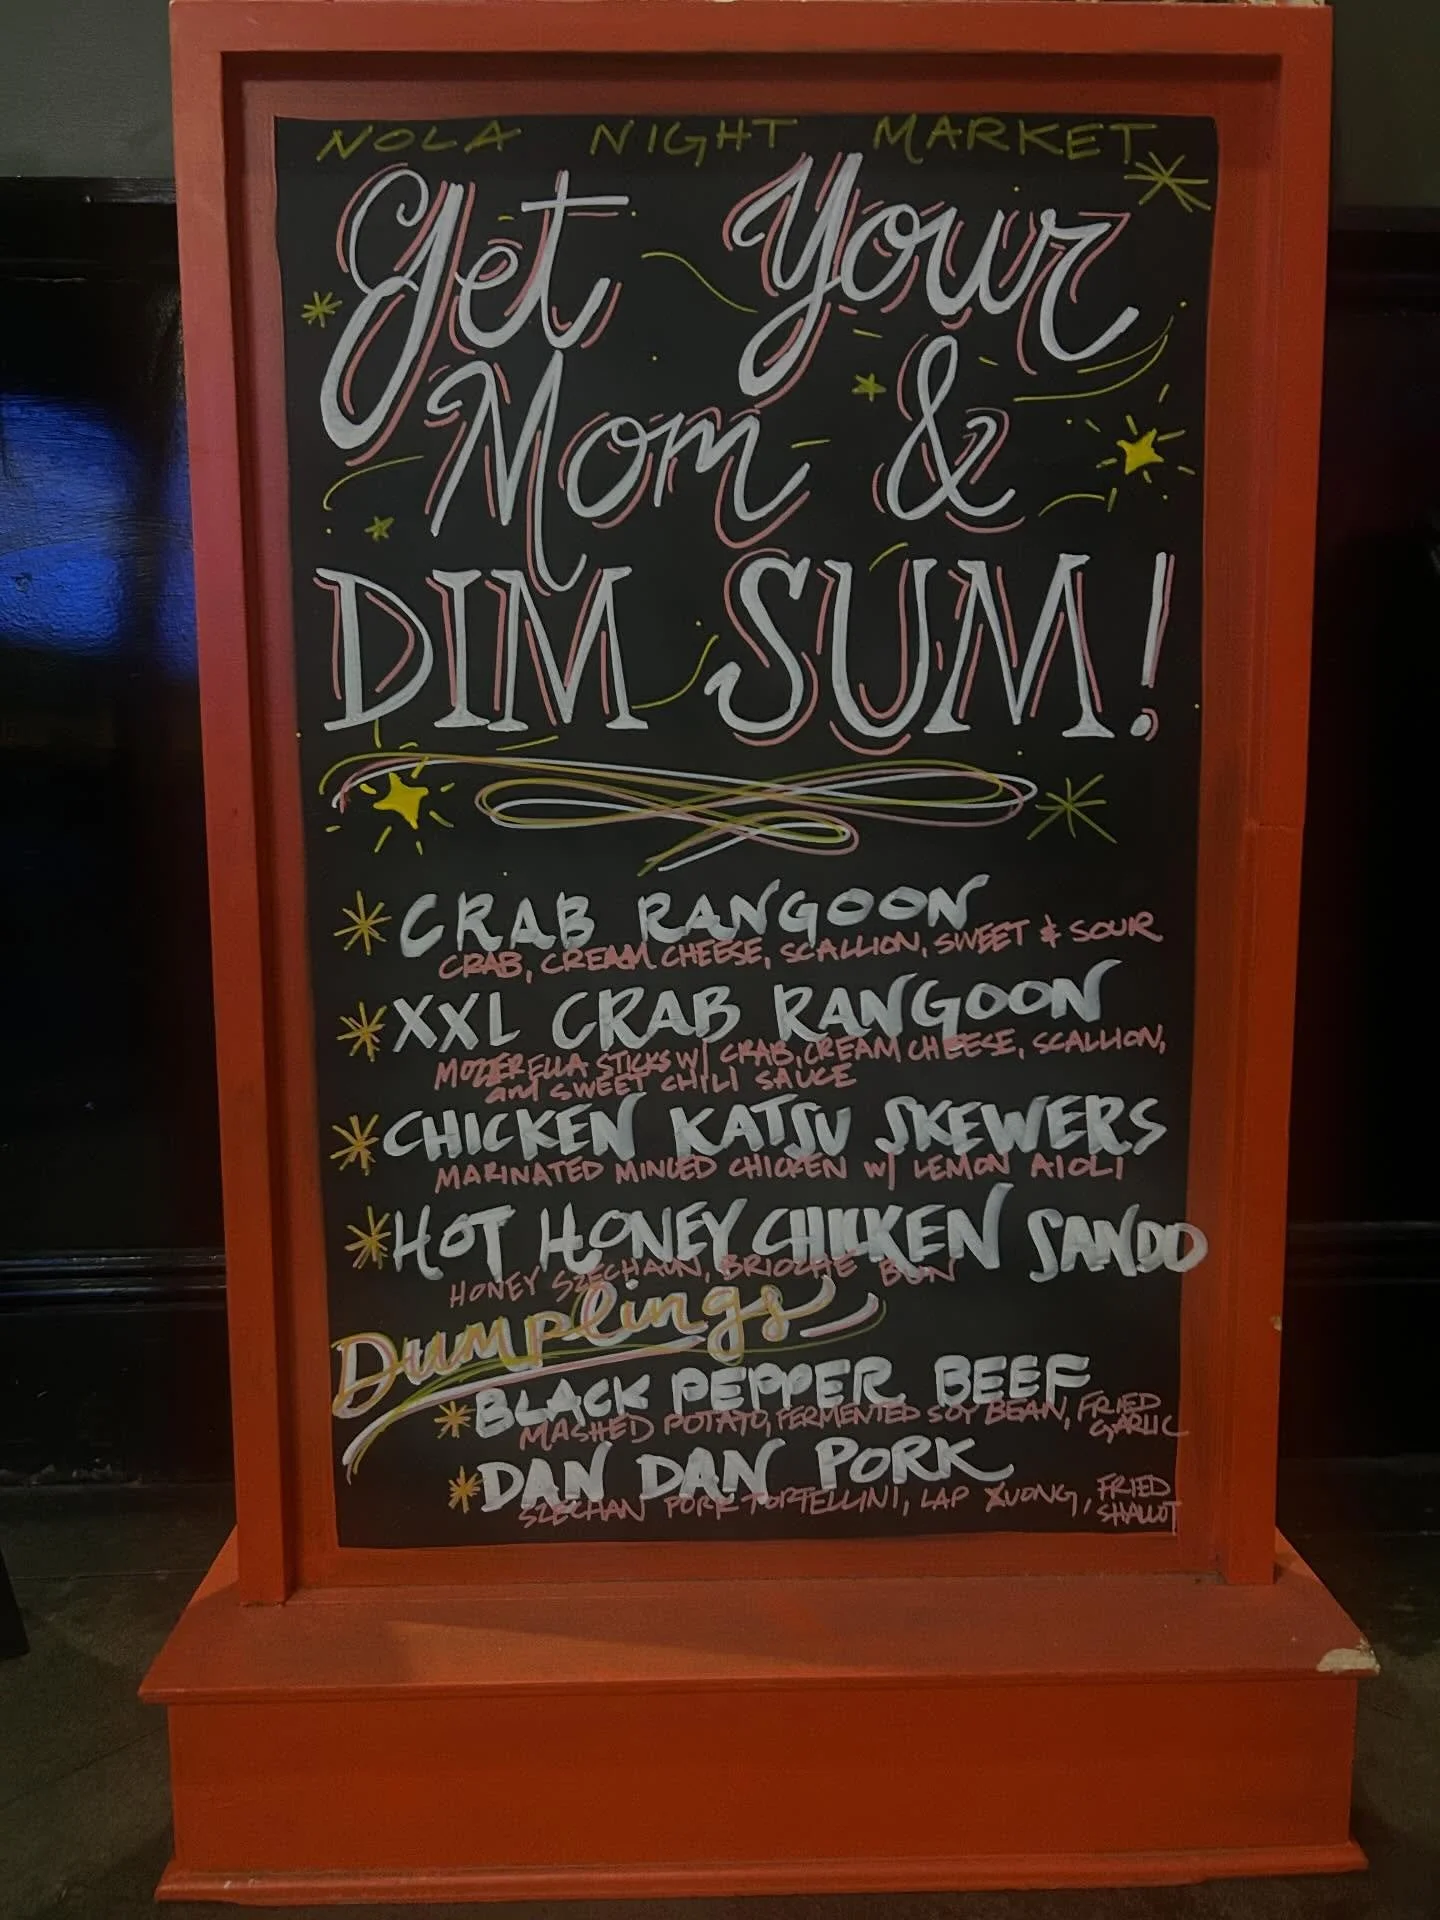 NOLA NIGHT MARKET
Get Your
Mom &
DIM SUM!
CRAB RANGOON
CRAB, CREAM CHEESE, SCALLION, SWEET & SOUR
XXL CRAB RANGOON
MOZZERELLA STICKS W/ CRAB, CREAM CHEESE, SCALLION,
and SWEET CHILI SAUCE
CHICKEN KATSU SKEWERS
MARINATED MINCED CHICKEN W/ LEMON AIOLI
HOT HONEY CHICKEN SANDO
HONEY SZECHAUN, BRIOCHE BUN
Dumplings
BLACK PEPPER BEEF
MASHED POTATO, FERMENTED SOY BEAN, FRIED
GARLIC
DAN DAN PORK
SZECHAN PORK TORTELLINI, LAP XUONG, FRIED
SHALLOT